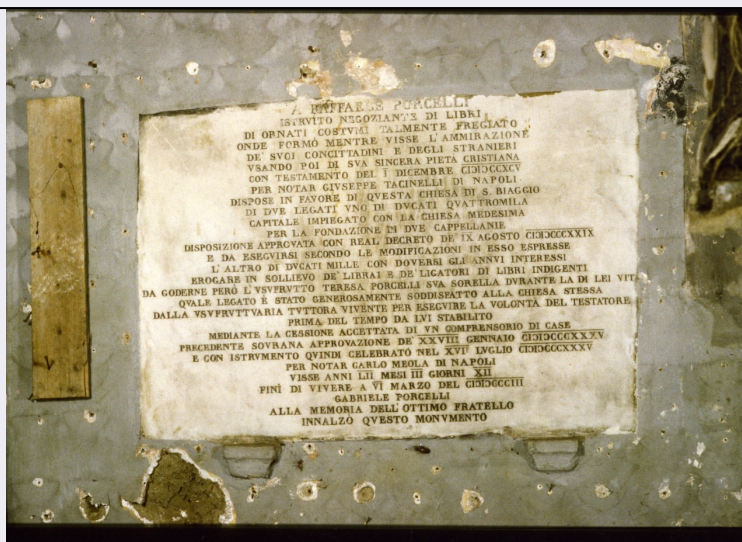 A RAFFAELE PORCELLI
ISTRVITO NEGOZIANTE DI LIBRI
DI ORNATI COSTVMI TALMENTE FREGIATO
ONDE FORMÒ MENTRE VISSE L'AMMIRAZIONE
DE' SVOI CONCITTADINI E DEGLI STRANIERI
VSANDO POI DI SVA SINCERA PIETA CRISTIANA
CON TESTAMENTO DEL I DICEMBRE CIƆIƆCCXCV
PER NOTAR GIVSEPPE TACINELLI DI NAPOLI
DISPOSE IN FAVORE DI QVESTA CHIESA DI S. BIAGGIO
DI DVE LEGATI VNO DI DVCATI QVATTROMILA
CAPITALE IMPIEGATO CON LA CHIESA MEDESIMA
PER LA FONDAZIONE DI DVE CAPPELLANIE
DISPOSIZIONE APPROVATA CON REAL DECRETO DE' IX AGOSTO CIƆIƆCCCXXIX
E DA ESEGVIRSI SECONDO LE MODIFICAZIONI IN ESSO ESPRESSE
L'ALTRO DI DVCATI MILLE CON DOVERSI GLI ANNVI INTERESSI
EROGARE IN SOLLIEVO DE' LIBRAI E DE' LIGATORI DI LIBRI INDIGENTI
DA GODERNE PERÒ L'VSVFRVTTO TERESA PORCELLI SVA SORELLA DVRANTE LA DI LEI VIT
QVALE LEGATO È STATO GENEROSAMENTE SODDISFATTO ALLA CHIESA STESSA
DALLA VSVFRVTTVARIA TVTTORA VIVENTE PER ESEGVIRE LA VOLONTÀ DEL TESTATORE
PRIMA DEL TEMPO DA LVI STABILITO
MEDIANTE LA CESSIONE ACCETTATA DI VN COMPRENSORIO DI CASE
PRECEDENTE SOVRANA APPROVAZIONE DE' XXVIII GENNAIO CIƆIƆCCCXXXV
E CON ISTRVMENTO QVINDI CELEBRATO NEL XVII LVGLIO CIƆIƆCCCXXXV
PER NOTAR CARLO MEOLA DI NAPOLI
VISSE ANNI LII MESI III GIORNI XII
FINÌ DI VIVERE A VI MARZO DEL CIƆIƆCCCIII
GABRIELE PORCELLI
ALLA MEMORIA DELL'OTTIMO FRATELLO
INNALZÒ QVESTO MONVMENTO